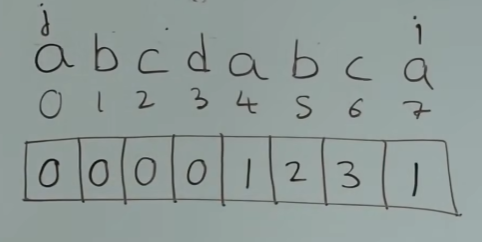 j i
a b c d a b c a
0 1 2 3 4 5 6 7
0 0 0 0 1 2 3 1